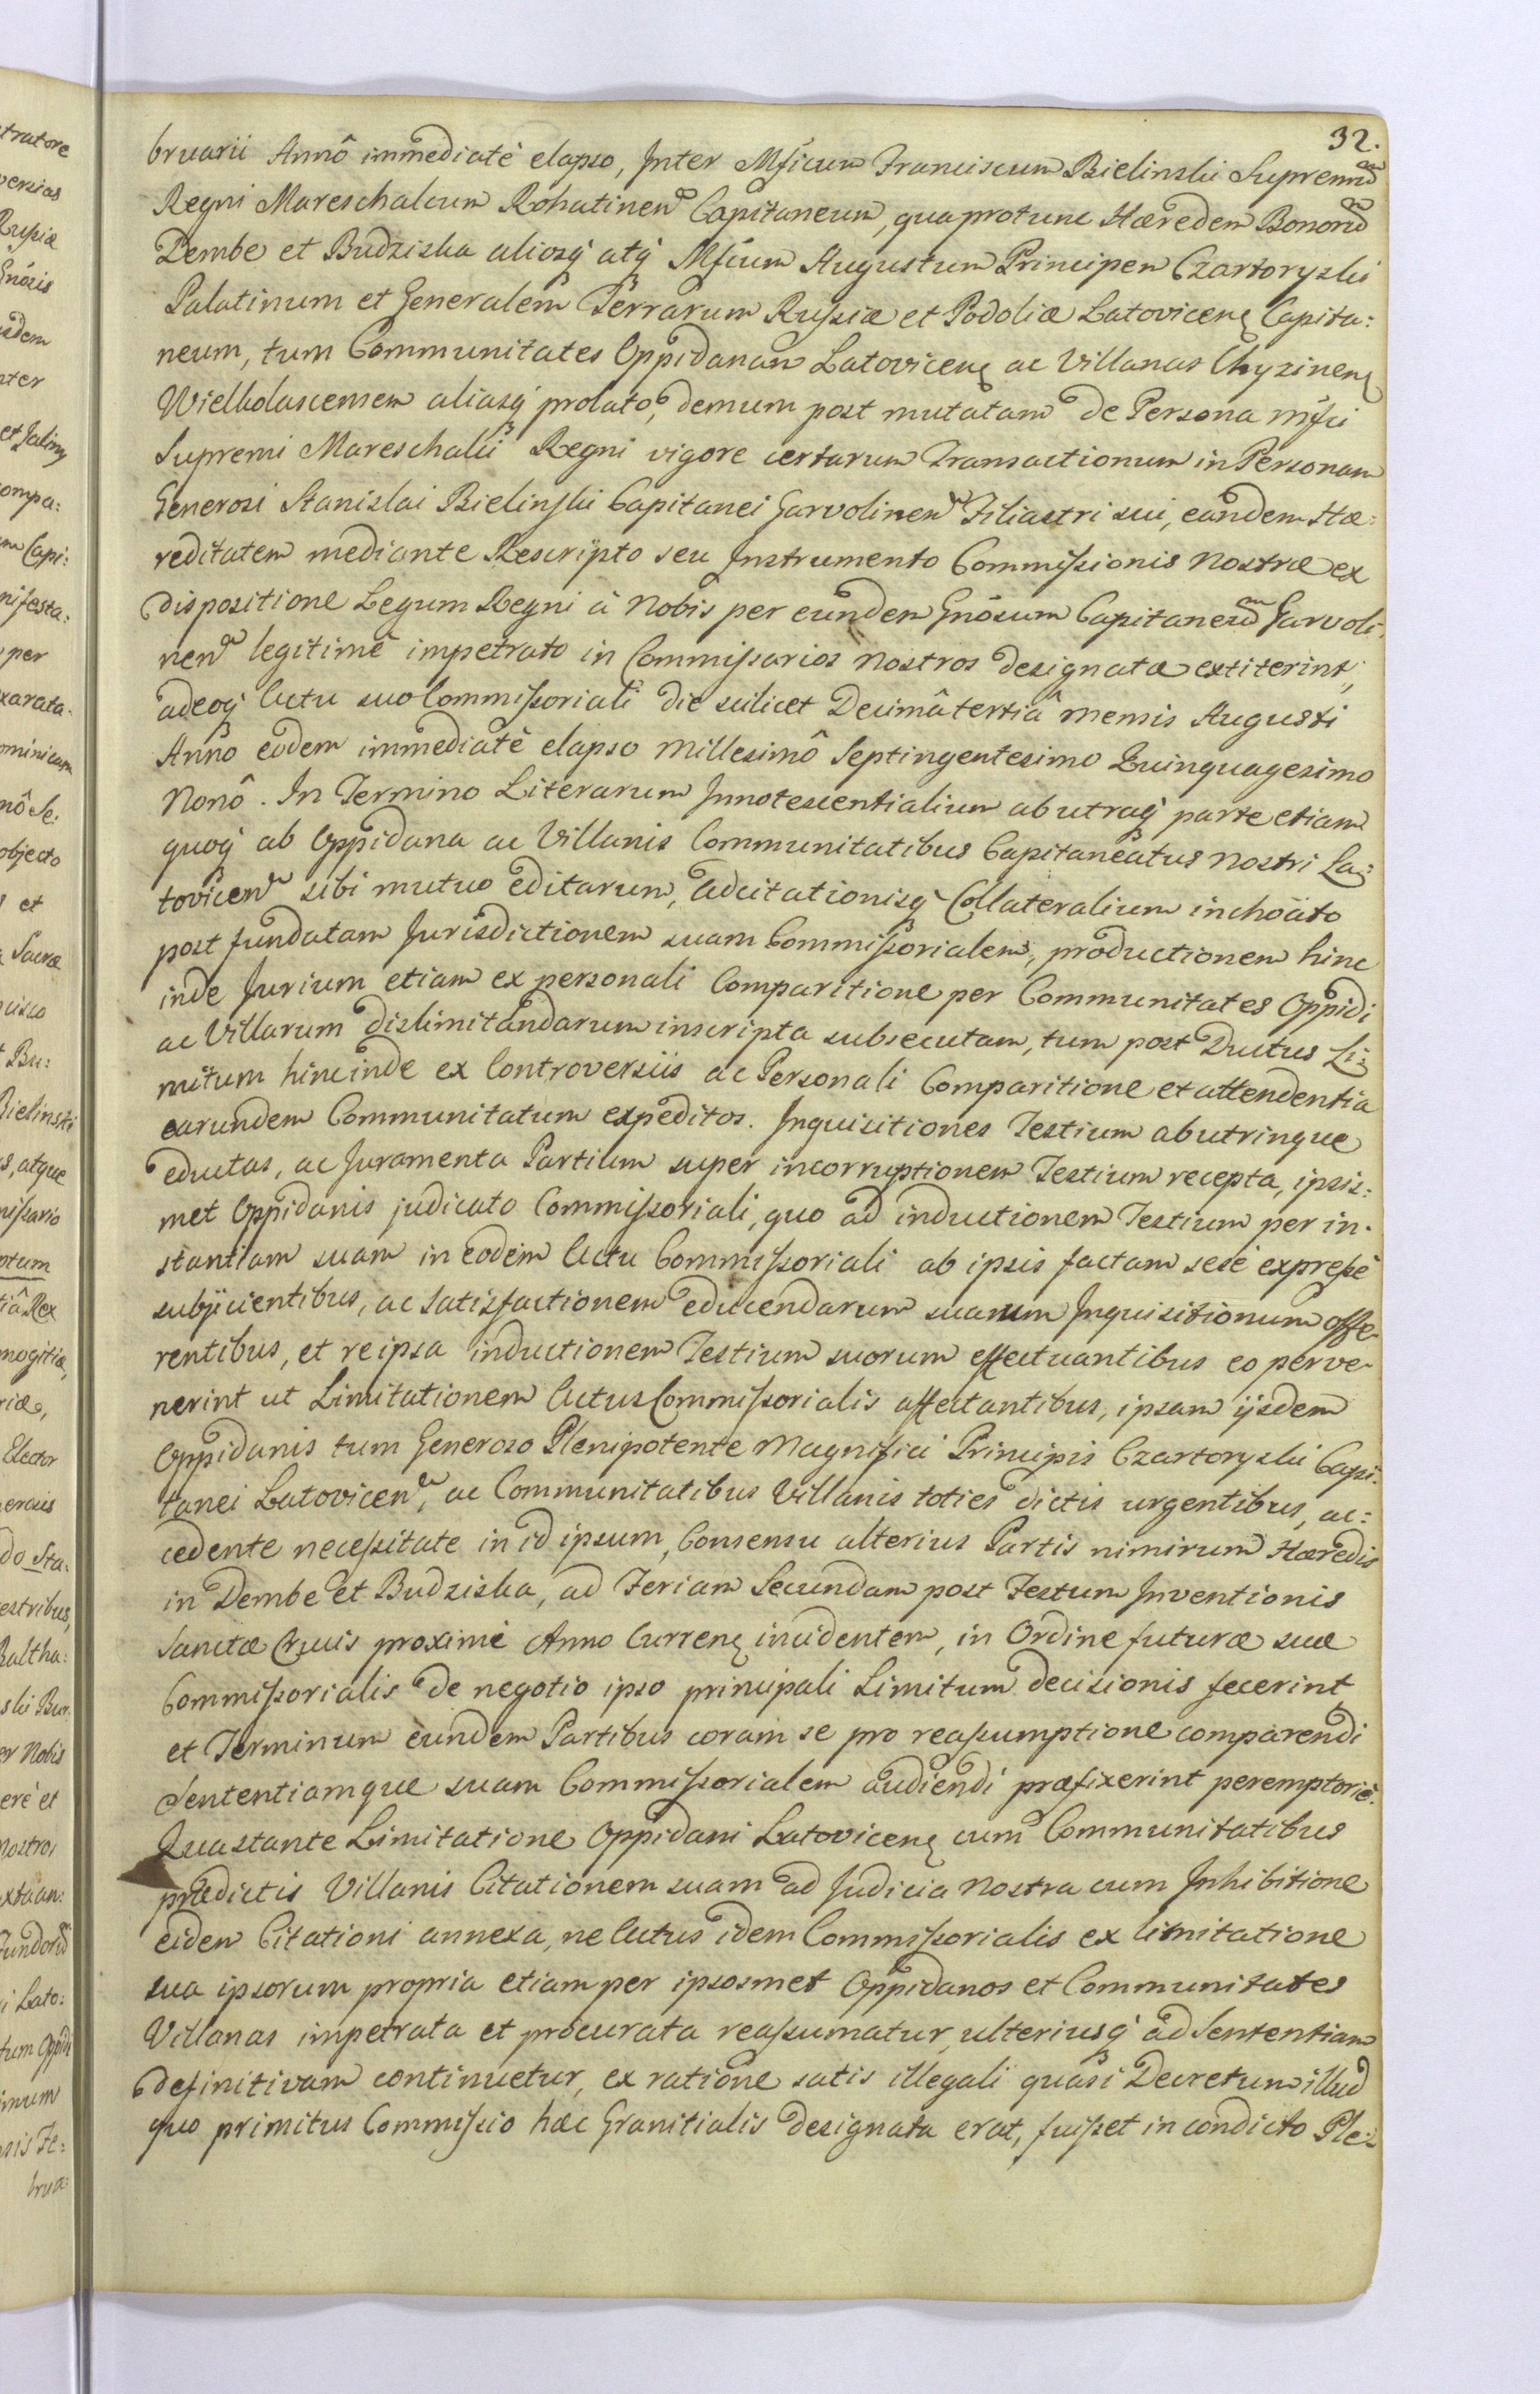 32.
bruarii Annô immediatè elapso, Inter Mficum Franciscum Bielinski Supremũ
Regni Mareschalcum Rohatinen̄ Capitaneum, qua protunc Hæredem Bonorũ
Dembe et Budziska aliosq́ atq́ Mficum Augustum Principem Czartoryski
Palatinum et Generalem Terrarum Russiæ et Podoliæ Latovicenę Capita:
neum, tum Communitates Oppidanam Latovicenę ac Villanas Chyzinenę
Wielkolascensem aliasq́ prolato, demum post mutatam de Persona Mfci
Supremi Mareschalci Regni vigore certarum Transactionum in Personam
Generosi Stanislai Bielinski Capitanei Garvolinen̄ Filiastri sui, eandem Hæ:
reditatem mediante Rescripto seu Instrumento Commissionis Nostræ ex
dispositione Legum Regni à Nobis per eundem Gnôsum Capitaneũm Garvoli
nen̄ legitimè impetrato in Commissarios Nostros designatæ extiterint;
adeoq́ Actu suo Commissoriali die scilicet Decimâ tertiâ mensis Augusti
Anno eodem immediatè elapso Millesimô Septingentesimo Quinquagesimo
Nonô. In Termino Literarum Innotescentialium ab utraq́ parte etiam
quoq́ ab Oppidana ac Villanis Communitatibus Capitaneatus Nostri La:
tovicen̄ sibi mutuo editarum, Adcitationisq́ Collateralium inchoäto
post fundatam Jurisdictionem suam Commissorialem, productionem hinc
inde Jurium etiam ex personali Comparitione per Communitates Oppidi
ac Villarum dislimitandarum inscripta subsecutam, tum post Ductus Li:
mitum hincinde ex Controversiis ac Personali Comparitione et attendentia
earundem Communitatum expeditos. Inquisitiones Testium ab utrinque
eductas, ac Juramenta Partium super incorruptionem Testium recepta, ipsis:
met Oppidanis judicato Commissoriali, quo ad inductionem Testium per in:
stantiam suam in eodem Actu Commissoriali ab ipsis factam sesè expressè
subjicientibus, ac Satisfactionem educendarum suarum Inquisitionum offe:
rentibus, et reipsa inductionem Testium suorum effectuantibus eo perve:
nerint ut Limitationem Actus Commissorialis affectantibus, ipsam ijsdem
Oppidanis tum Generoso Plenipotente Magnifici Principis Czartoryski Capi:
tanei Latovicen̄, ac Communitatibus Villanis toties dictis urgentibus, ac:
cedente necessitate in id ipsum, Consensu alterius Partis nimirum Hæredis
in Dembe et Budziska, ad Feriam Secundam post Festum Inventionis
Sanctæ Crucis proximè Anno Currenę incidentem, in Ordine futuræ suæ
Commissorialis de negotio ipso principali Limitum decisionis fecerint
et Terminum eundem Partibus coram se pro reassumptione comparendi
Sententiamque suam Commissorialem audiendi præfixerint peremptoriè.
Qua stante Limitatione Oppidani Latovicenę cum Communitatibus
prædictis Villanis Citationem suam ad Judicia Nostra cum Inhibitione
eidem Citationi annexa, ne Actus idem Commissorialis ex limitatione
sua ipsorum propria etiam per ipsosmet Oppidanos et Communitates
Villanas impetrata et procurata reassumatur, ulteriusq́ ad Sententiam
definitivam continuetur, ex ratione satis illegali quasi Decretum illud
quo primitus Commissio hæc Granitialis designata erat, fuisset in condicto Ple: